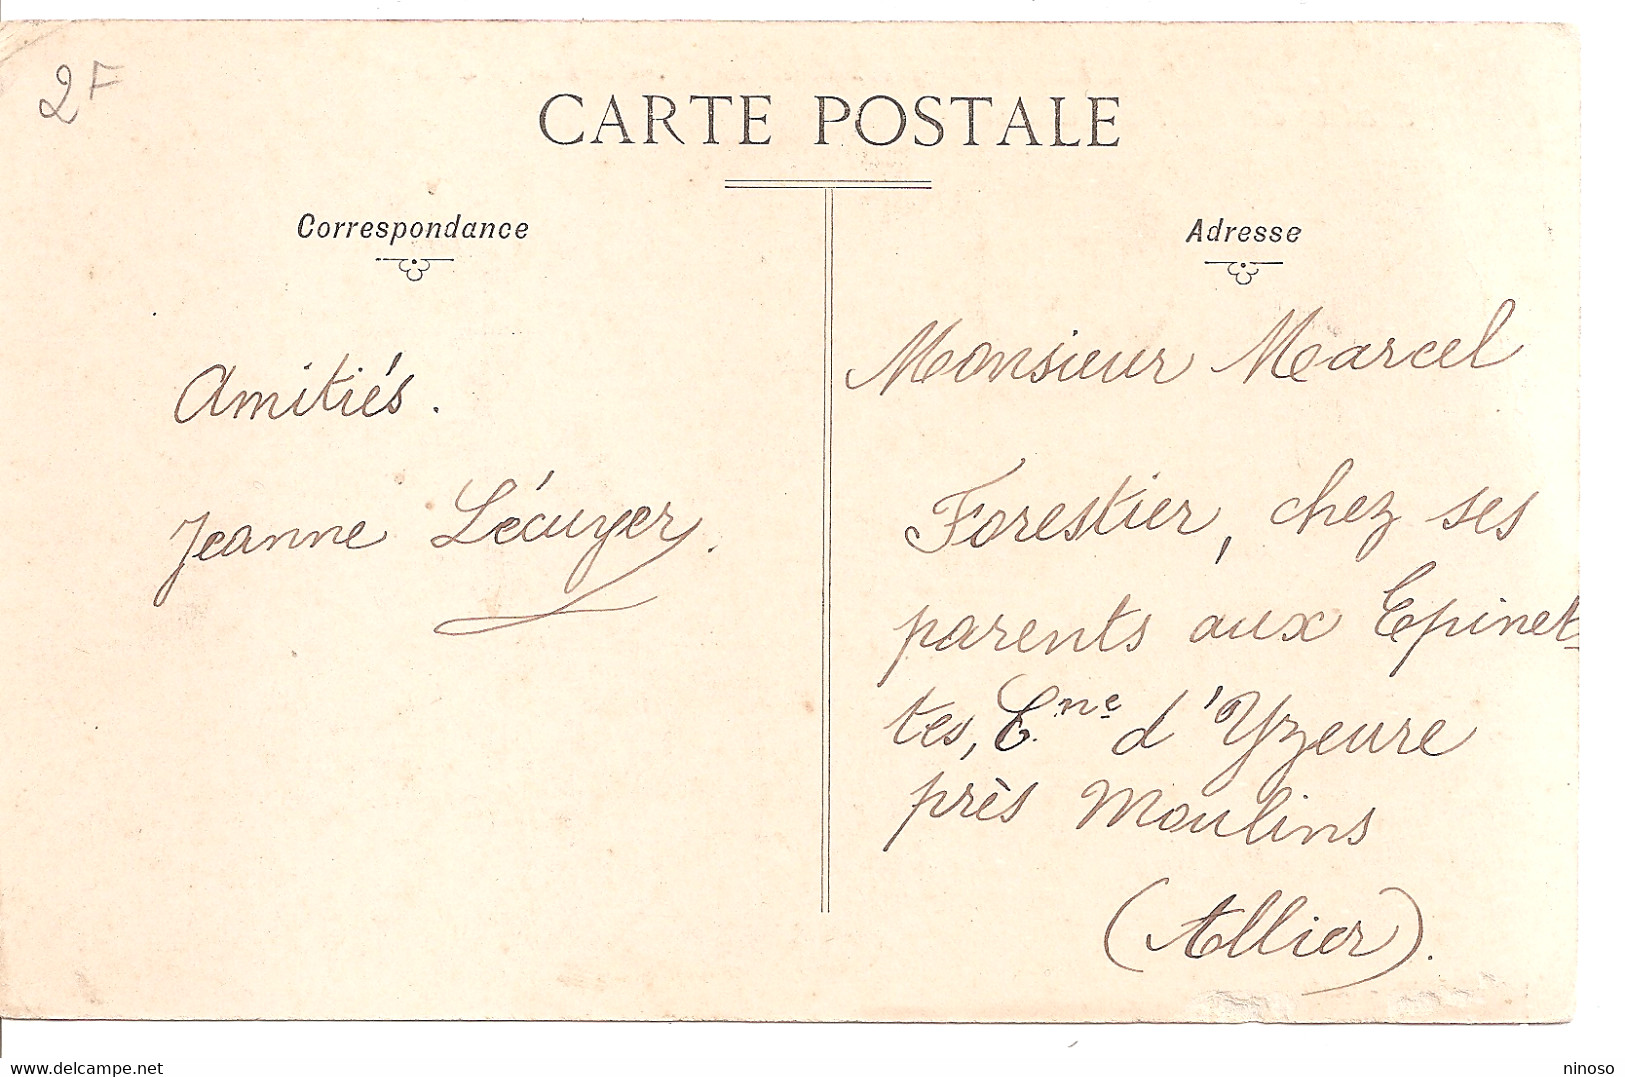 2F
CARTE POSTALE
Correspondance
Amitiés.
Jeanne Lécuyer.
Adresse
Monsieur Marcel
Forestier, chez ses
parents aux Epinet-
tes, Cne d'Yzeure
près Moulins
(Allier).
www.delcampe.net
ninoso